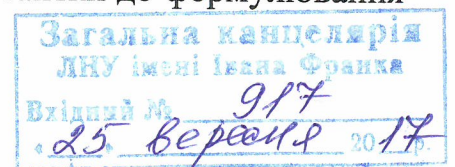 до формулювання
Загальна канцелярія
ЛНУ імені Івана Франка
Вхідний № 917
"25" вересня 2017р.